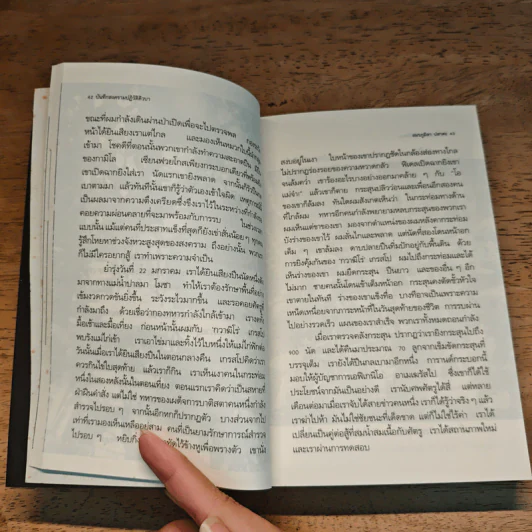 ๔๔ บันทึกสงครามปฏิวัติคิวบา
ขณะที่ผมกำลังเดินผ่านป่าเปิดเพื่อจะไปตรวจพล
หน้าได้ยินเสียงเราแต่ไกล และมองเห็นหมวกใบนี้
เข้ามา โชคดีที่ตอนนั้นพวกเขากำลังทำความสะอาดปืน
ของกามิโล เซียนฟวยโกสเพียงกระบอกเดียวที่พร้อม
เขาปืนดันขัดลำ
เบาตามมา แล้วทันทีนั้นเขาก็รู้ว่าตัวเองเข้าใจผิด เหตุการณ์
เป็นผลมาจากความตึงเครียดซึ่งซึ่งเราไว้ในระหว่างที่กำลัง
คอยความผ่อนคลายที่จะมาพร้อมกับการรบ ในช่วงเวลา
แบบนั้น แม้แต่คนที่ประสาทแข็งที่สุดก็ยังเข่าสั่นน้อย ๆ ทุกคน
รู้สึกโหยหาช่วงจังหวะสูงสุดของสงคราม ถึงอย่างนั้น พวกเรา
ก็ไม่มีใครอยากสู้ เราทำเพราะความจำเป็น
ย่ำรุ่งวันที่ ๒๒ มกราคม เราได้ยินเสียงปืนนัดหนึ่งดัง
มาจากทางแม่น้ำปาลมา โมชา ทำให้เราต้องรักษาพื้นที่อย่าง
เข้มงวดกวดขันยิ่งขึ้น ระวังระไวมากขึ้น และรอคอยศัตรูที่
กำลังมาถึง ด้วยเชื่อว่ากองทหารกำลังใกล้เข้ามา เราจึง
มื้อเช้าและมื้อเที่ยง ก่อนหน้านั้นผมกับ
พบรังแม่ไก่เข้า เราเอาไข่มาและทิ้งไว้ใบหนึ่งให้แม่ไก่ฟัก
วันนั้นเมื่อเราได้ยินเสียงปืนในตอนกลางคืน เกรสโปคิดว่าเรา
ควรกินไข่ใบสุดท้าย แล้วเราก็กิน เราเห็นเงาคนในกระท่อม
หนึ่งในสองหลังนั้นในตอนเที่ยง ตอนแรกเราคิดว่าเป็นสหายที่
ฝ่าฝืนคำสั่ง แต่ไม่ใช่ ทหารของเผด็จการบาติสตาคนหนึ่งกำลัง
สำรวจไปรอบ ๆ จากนั้นอีกหกก็ปรากฏตัว บางส่วนจากไป
เท่าที่เรามองเห็นเหลืออยู่สาม คนที่เป็นยามรักษาการณ์สำรวจ
ไปรอบ ๆ หยิบ ขัดไว้ข้างหูเพื่อพรางตัว เขานั่ง
เออร์เนสโต เช เกวารา ๔๕
สงบอยู่ในเงา ใบหน้าของเขาปรากฏชัดในกล้องส่องทางไกล
ไม่ปรากฏร่องรอยของความหวาดกลัว ฟิเดลเปิดฉากยิงเขา
จนล้มคว่ำ เขาร้องอะไรบางอย่างออกมาคล้าย ๆ กับ “โอ
แม่จ๋า” แล้วเขาก็ตาย กระสุนปลิวว่อนและเพื่อนอีกสองคน
ของเขาก็ล้มลง ทันใดผมสังเกตเห็นว่า ในกระท่อมทางด้าน
ที่ใกล้ผม ทหารอีกคนกำลังพยายามหลบกระสุนของพวกเรา
ผมเห็นแต่ขาของเขา มองจากตำแหน่งของผมหลังคากระท่อม
บังร่างของเขาไว้ ผมลั่นไกและพลาด แต่นัดที่สองโดนหน้าอก
เต็ม ๆ เขาล้มลง ดาบปลายปืนทิ่มปักอยู่กับพื้นดิน ด้วย
การยิงคุ้มกันของ เกรสโป ผมไปถึงกระท่อมและได้
เห็นร่างของเขา ผมยึดกระสุน ปืนยาว และของอื่น ๆ อีก
ไม่มาก ชายคนนั้นโดนเข้าเต็มหน้าอก กระสุนคงตัดขั้วหัวใจ
เขาตายในทันที ร่างของเขาแข็งทื่อ บางทีอาจเป็นเพราะความ
เหน็ดเหนื่อยจากภาระหน้าที่ในวันสุดท้ายของชีวิต การรบผ่าน
ไปอย่างรวดเร็ว แผนของเราสำเร็จ พวกเราทั้งหมดถอนกำลัง
เมื่อเราตรวจคลังกระสุน ปรากฏว่าเรายิงกระสุนไปถึง
๙๐๐ นัด และได้คืนมาประมาณ ๗๐ ลูกจากเข็มขัดกระสุนที่
บรรจุเต็ม เรายังได้ปืนกลเบามาอีกหนึ่ง การานด์กระบอกนี้
มอบให้ผู้บัญชาการเอฟิเกนิโอ อาเมเฆวรัสไป ซึ่งเขาก็ได้ใช้
ประโยชน์จากมันเป็นอย่างดี เรานับศพศัตรูได้สี่ แต่หลาย
เดือนต่อมาเมื่อเราจับได้สายข่าวคนหนึ่ง เราก็ได้รู้ว่าจริง ๆ แล้ว
เราฆ่าไปห้า มันไม่ใช่ชัยชนะที่เด็ดขาด แต่ก็ไม่ใช่ไร้ค่า เราได้
เปลี่ยนเป็นคู่ต่อสู้ที่สมน้ำสมเนื้อกับศัตรู เราได้สถานภาพใหม่
และเราผ่านการทดสอบ